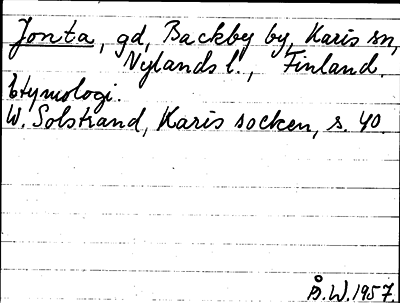 Jonta, gd, Backby by, Karis sn,
Nylands l., Finland.
Etymologi.
W. Solstrand, Karis socken, s. 40.
Å.W.1957.